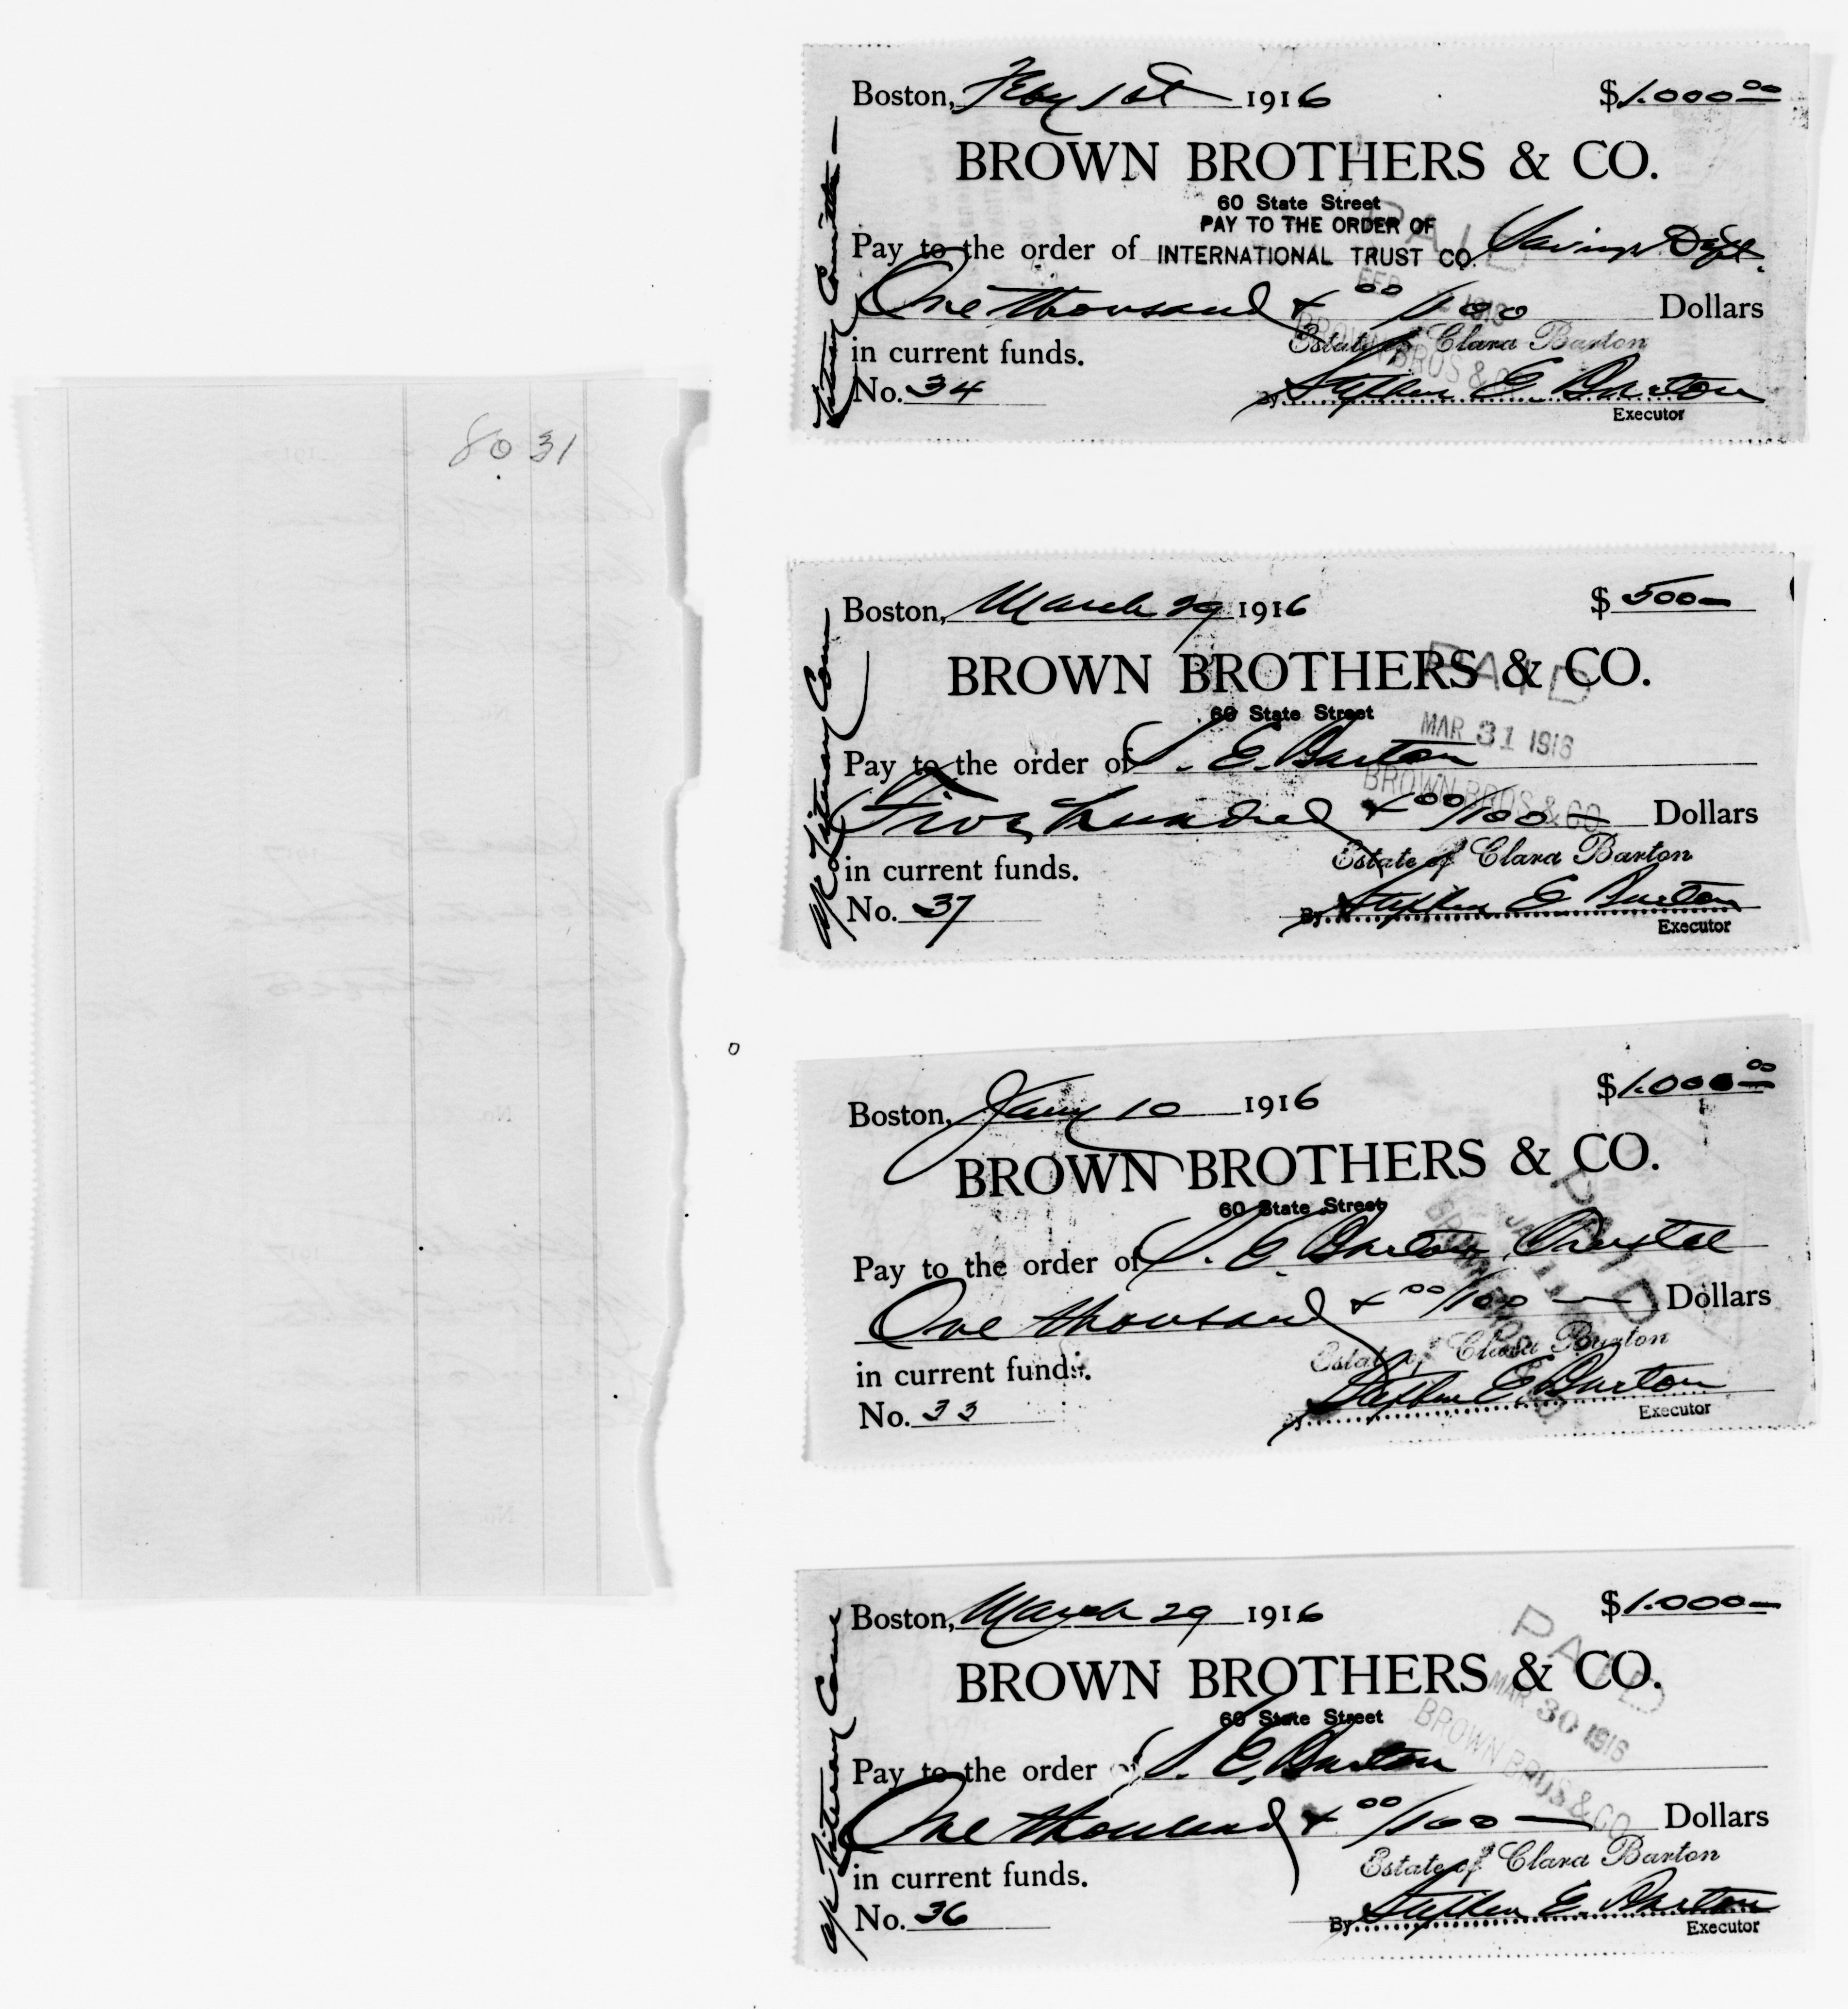 80 31
Boston, Feby 1st 1916 $1.000 00
BROWN BROTHERS & CO.
60 State Street
PAY TO THE ORDER OF
Pay to the order of INTERNATIONAL TRUST CO. Savings Dept.
One thousand & 00/100 Dollars
in current funds.
Estate of Clara Barton
No. 34
By Stephen E. Barton
Executor
Literary Committee
PAID
FEB 1916
BROWN BROS & CO
Boston, March 29 1916 $500
BROWN BROTHERS & CO.
60 State Street
Pay to the order of S. E. Barton
Five hundred & 00/100 Dollars
in current funds.
Estate of Clara Barton
No. 37
By Stephen E. Barton
Executor
a/c Literary Com
PAID
MAR 31 1916
BROWN BROS & CO
Boston, Jany 10 1916 $1.000 00
BROWN BROTHERS & CO.
60 State Street
Pay to the order of S. E. Barton, Trustee
One thousand & 00/100 Dollars
in current funds.
Estate of Clara Barton
No. 33
By Stephen E. Barton
Executor
PAID
JAN 11
BROWN BROS & CO
Boston, March 29 1916 $1.000
BROWN BROTHERS & CO.
60 State Street
Pay to the order of S. E. Barton
One thousand & 00/100 Dollars
in current funds.
Estate of Clara Barton
No. 36
By Stephen E. Barton
Executor
a/c Literary Com
PAID
MAR 30 1916
BROWN BROS & CO